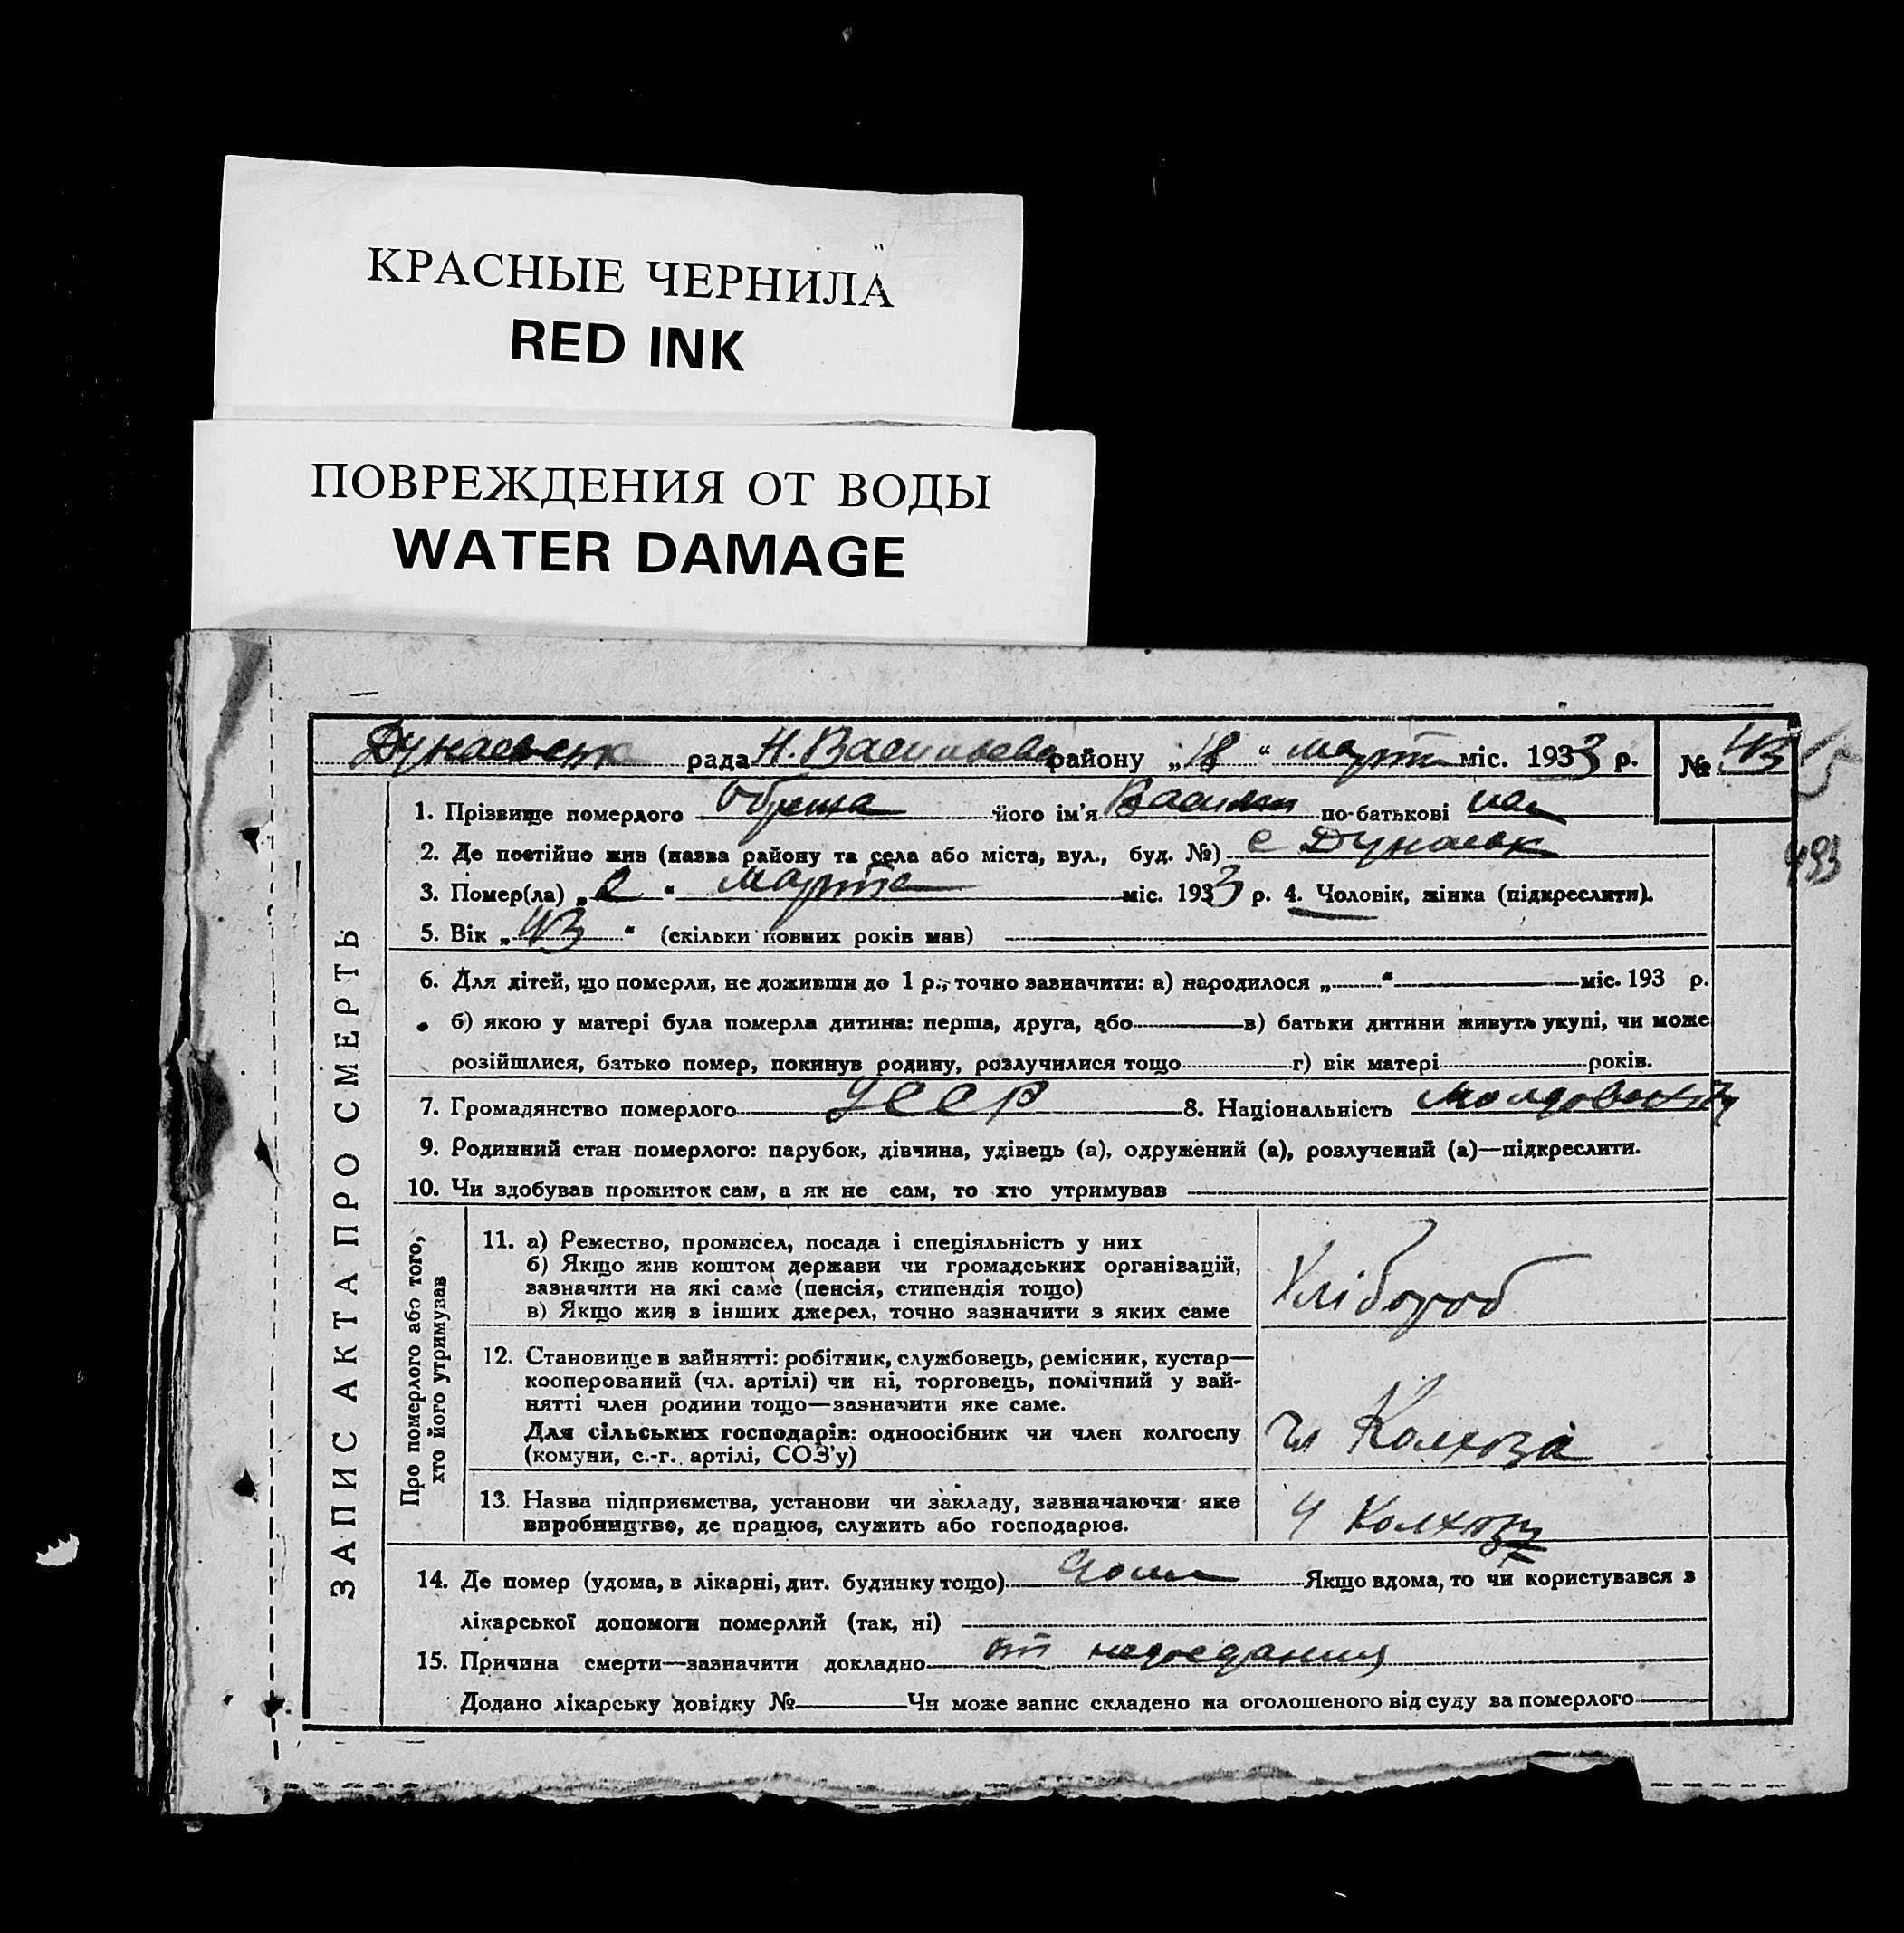 КРАСНЫЕ ЧЕРНИЛА
RED INK
ПОВРЕЖДЕНИЯ ОТ ВОДЫ
WATER DAMAGE
рада Н. Васильево району „18“ марта міс. 1933 р. № 43
1. Прізвище померлого його ім'я Василий по-батькові
2. Де постійно жив (назва району та села або міста, вул., буд. №) с Дунаевк
3. Помер(ла) „2“ марта міс. 1933 р. 4. Чоловік, жінка (підкреслити).
5. Вік „43“ (скільки повних років мав)
6. Для дітей, що померли, не доживши до 1 р., точно зазначити: а) народилося „ “ міс. 193 р.
б) якою у матері була померла дитина: перша, друга, або в) батьки дитини живуть укупі, чи може
розійшлися, батько помер, покинув родину, розлучилися тощо г) вік матері років.
7. Громадянство померлого УССР 8. Національність
9. Родинний стан померлого: парубок, дівчина, удівець (а), одружений (а), розлучений (а)—підкреслити.
10. Чи здобував прожиток сам, а як не сам, то хто утримував
ЗАПИС АКТА ПРО СМЕРТЬ
Про померлого або того,
хто його утримував
11. а) Ремество, промисел, посада і спеціяльність у них
б) Якщо жив коштом держави чи громадських організацій,
зазначити на які саме (пенсія, стипендія тощо)
в) Якщо жив з інших джерел, точно зазначити з яких саме
Хлібороб
12. Становище в зайнятті: робітник, службовець, ремісник, кустар—
кооперований (чл. артілі) чи ні, торговець, помічний у зай-
нятті член родини тощо—зазначити яке саме.
Для сільських господарів: одноосібник чи член колгоспу
(комуни, с.-г. артілі, СОЗ'у)
чл Колхоза
13. Назва підприємства, установи чи закладу, зазначаючи яке
виробництво, де працює, служить або господарює.
У Колхозу
14. Де помер (удома, в лікарні, дит. будинку тощо) дома Якщо вдома, то чи користувався з
лікарської допомоги померлий (так, ні)
15. Причина смерти—зазначити докладно от недоедания
Додано лікарську довідку № Чи може запис складено на оголошеного від суду за померлого